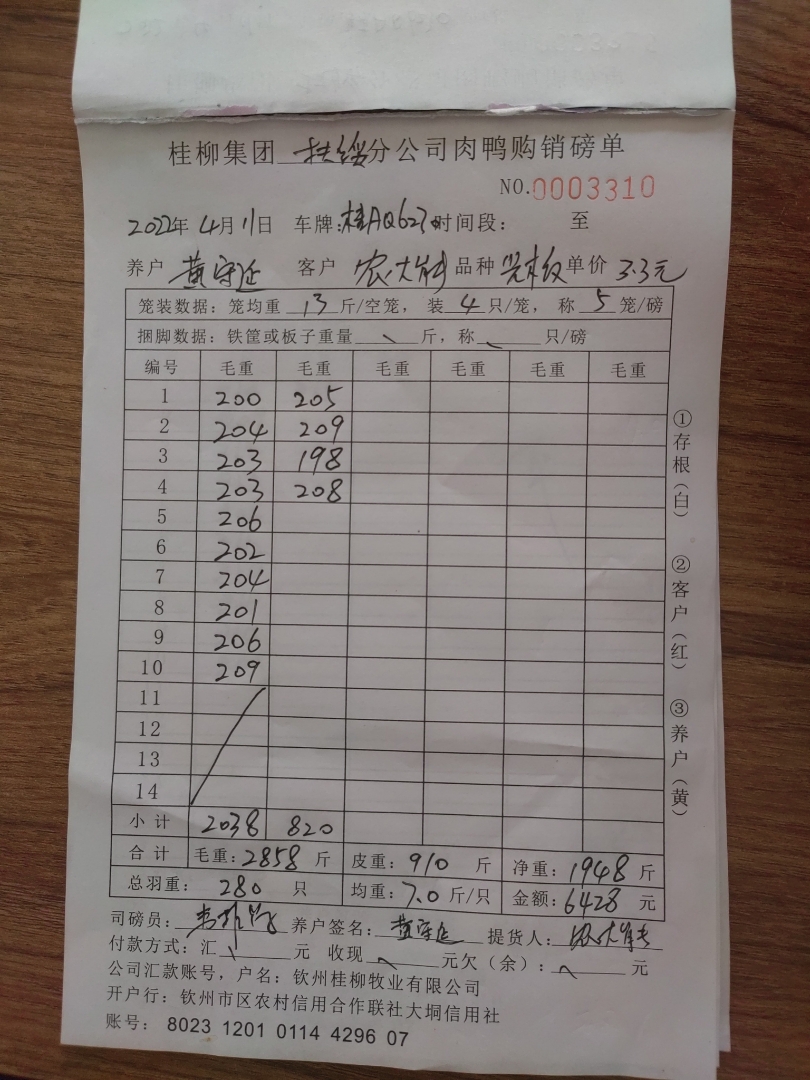 桂柳集团 扶绥 分公司肉鸭购销磅单
NO.0003310
2022年 4月 11日 车牌: 桂AQ627 时间段: 至
养户 黄守廷 客户 农大 品种 单价 3.3元
笼装数据: 笼均重 13 斤/空笼, 装 4 只/笼, 称 5 笼/磅
捆脚数据: 铁筐或板子重量 \ 斤, 称 \ 只/磅
编号 毛重 毛重 毛重 毛重 毛重 毛重
1 200 205
2 204 209
3 203 198
4 203 208
5 206
6 202
7 204
8 201
9 206
10 209
11
12
13
14
小计 2038 820
合计 毛重: 2858 斤 皮重: 910 斤 净重: 1948 斤
总羽重: 280 只 均重: 7.0 斤/只 金额: 6428 元
司磅员: 养户签名: 黄守廷 提货人:
付款方式: 汇 \ 元 收现 \ 元欠(余): \ 元
公司汇款账号, 户名: 钦州桂柳牧业有限公司
开户行: 钦州市区农村信用合作联社大垌信用社
账号: 8023 1201 0114 4296 07
①存根(白) ②客户(红) ③养户(黄)